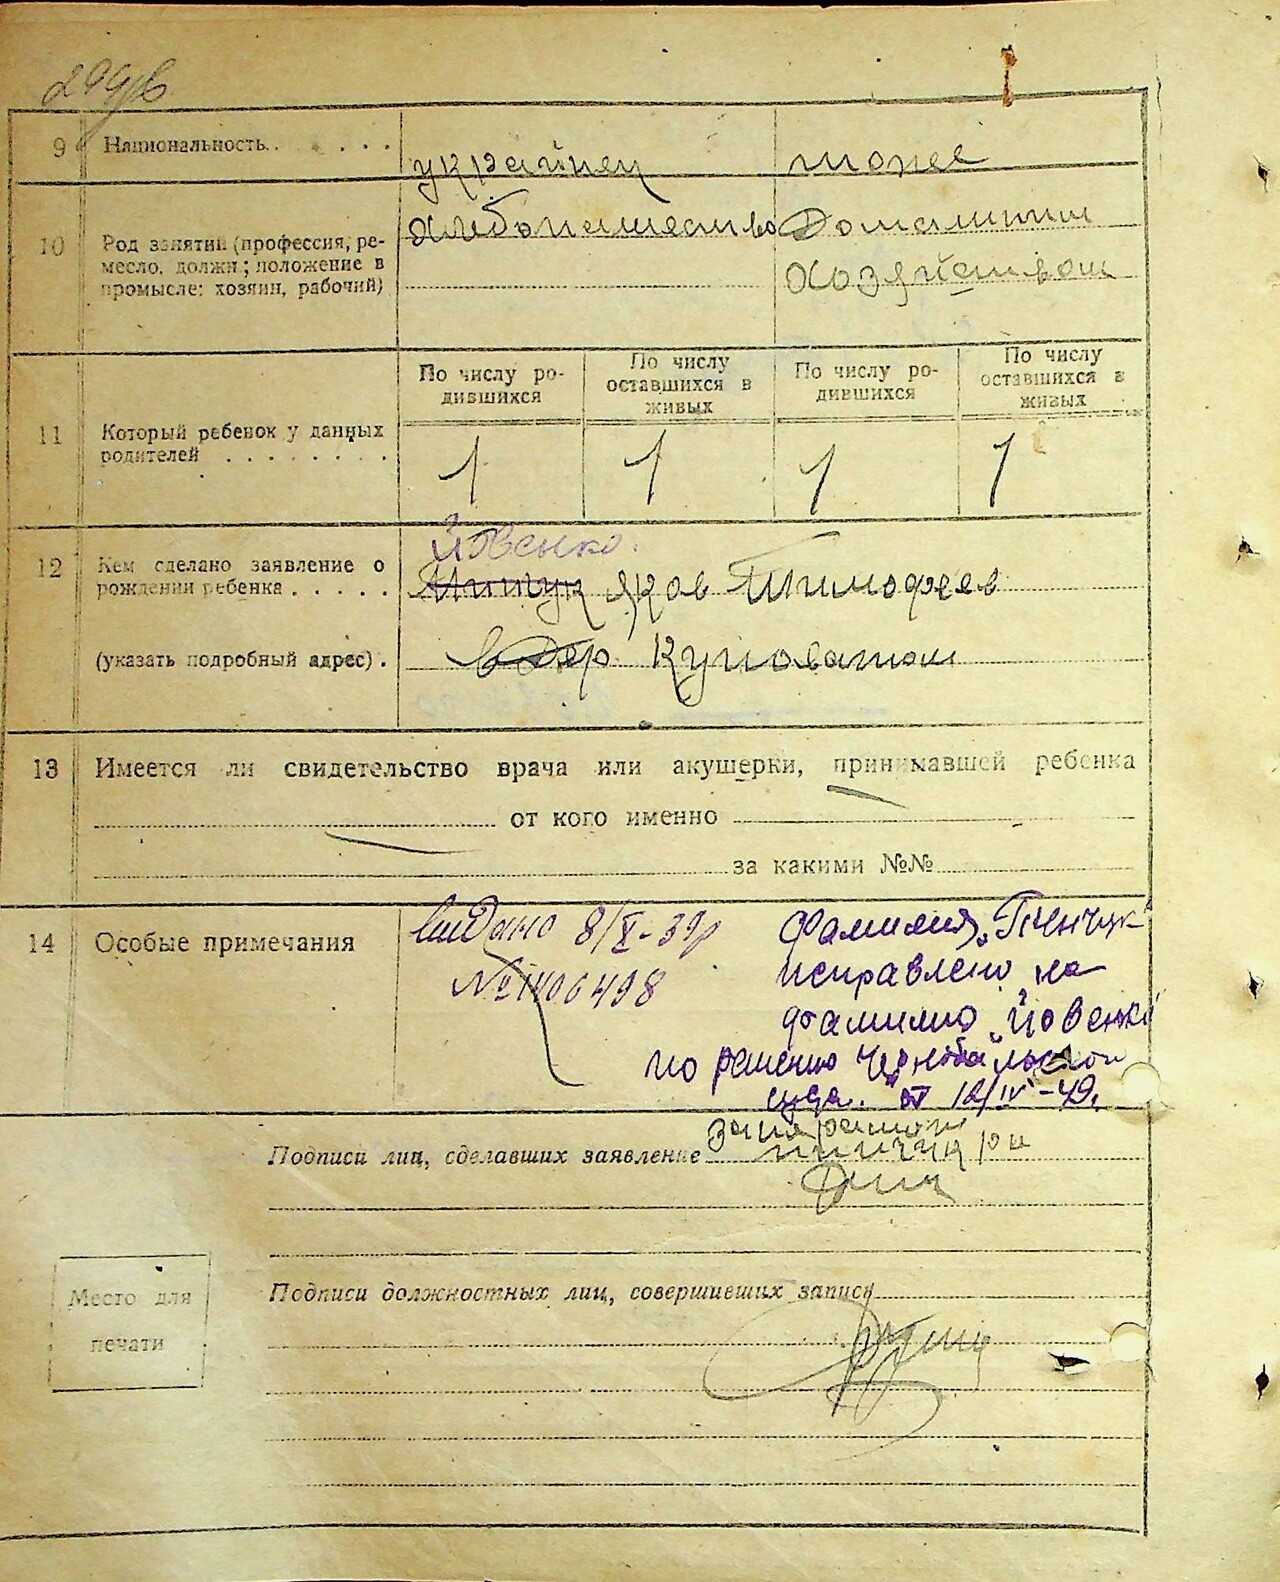 9 Национальность
украинец тоже
10 Род занятий (профессия, ре-
месло, должн.; положение в
промысле: хозяин, рабочий)
хлебопашество Домашним
хозяйством
По числу ро-
дившихся
По числу
оставшихся в
живых
По числу ро-
дившихся
По числу
оставшихся в
живых
11 Который ребенок у данных
родителей
1 1 1 1
Йовенко
12 Кем сделано заявление о
рождении ребенка
Яков Тимофеев
(указать подробный адрес).
в Куповатом
13 Имеется ли свидетельство врача или акушерки, принимавшей ребенка
от кого именно
за какими №№
14 Особые примечания
видано 8/X-39р
№ 1406498
Фамилия
исправлено на
фамилию „Йовенко"
по решению
от 12/IV-49.
Подписи лиц, сделавших заявление
Место для
печати
Подписи должностных лиц, совершивших запись